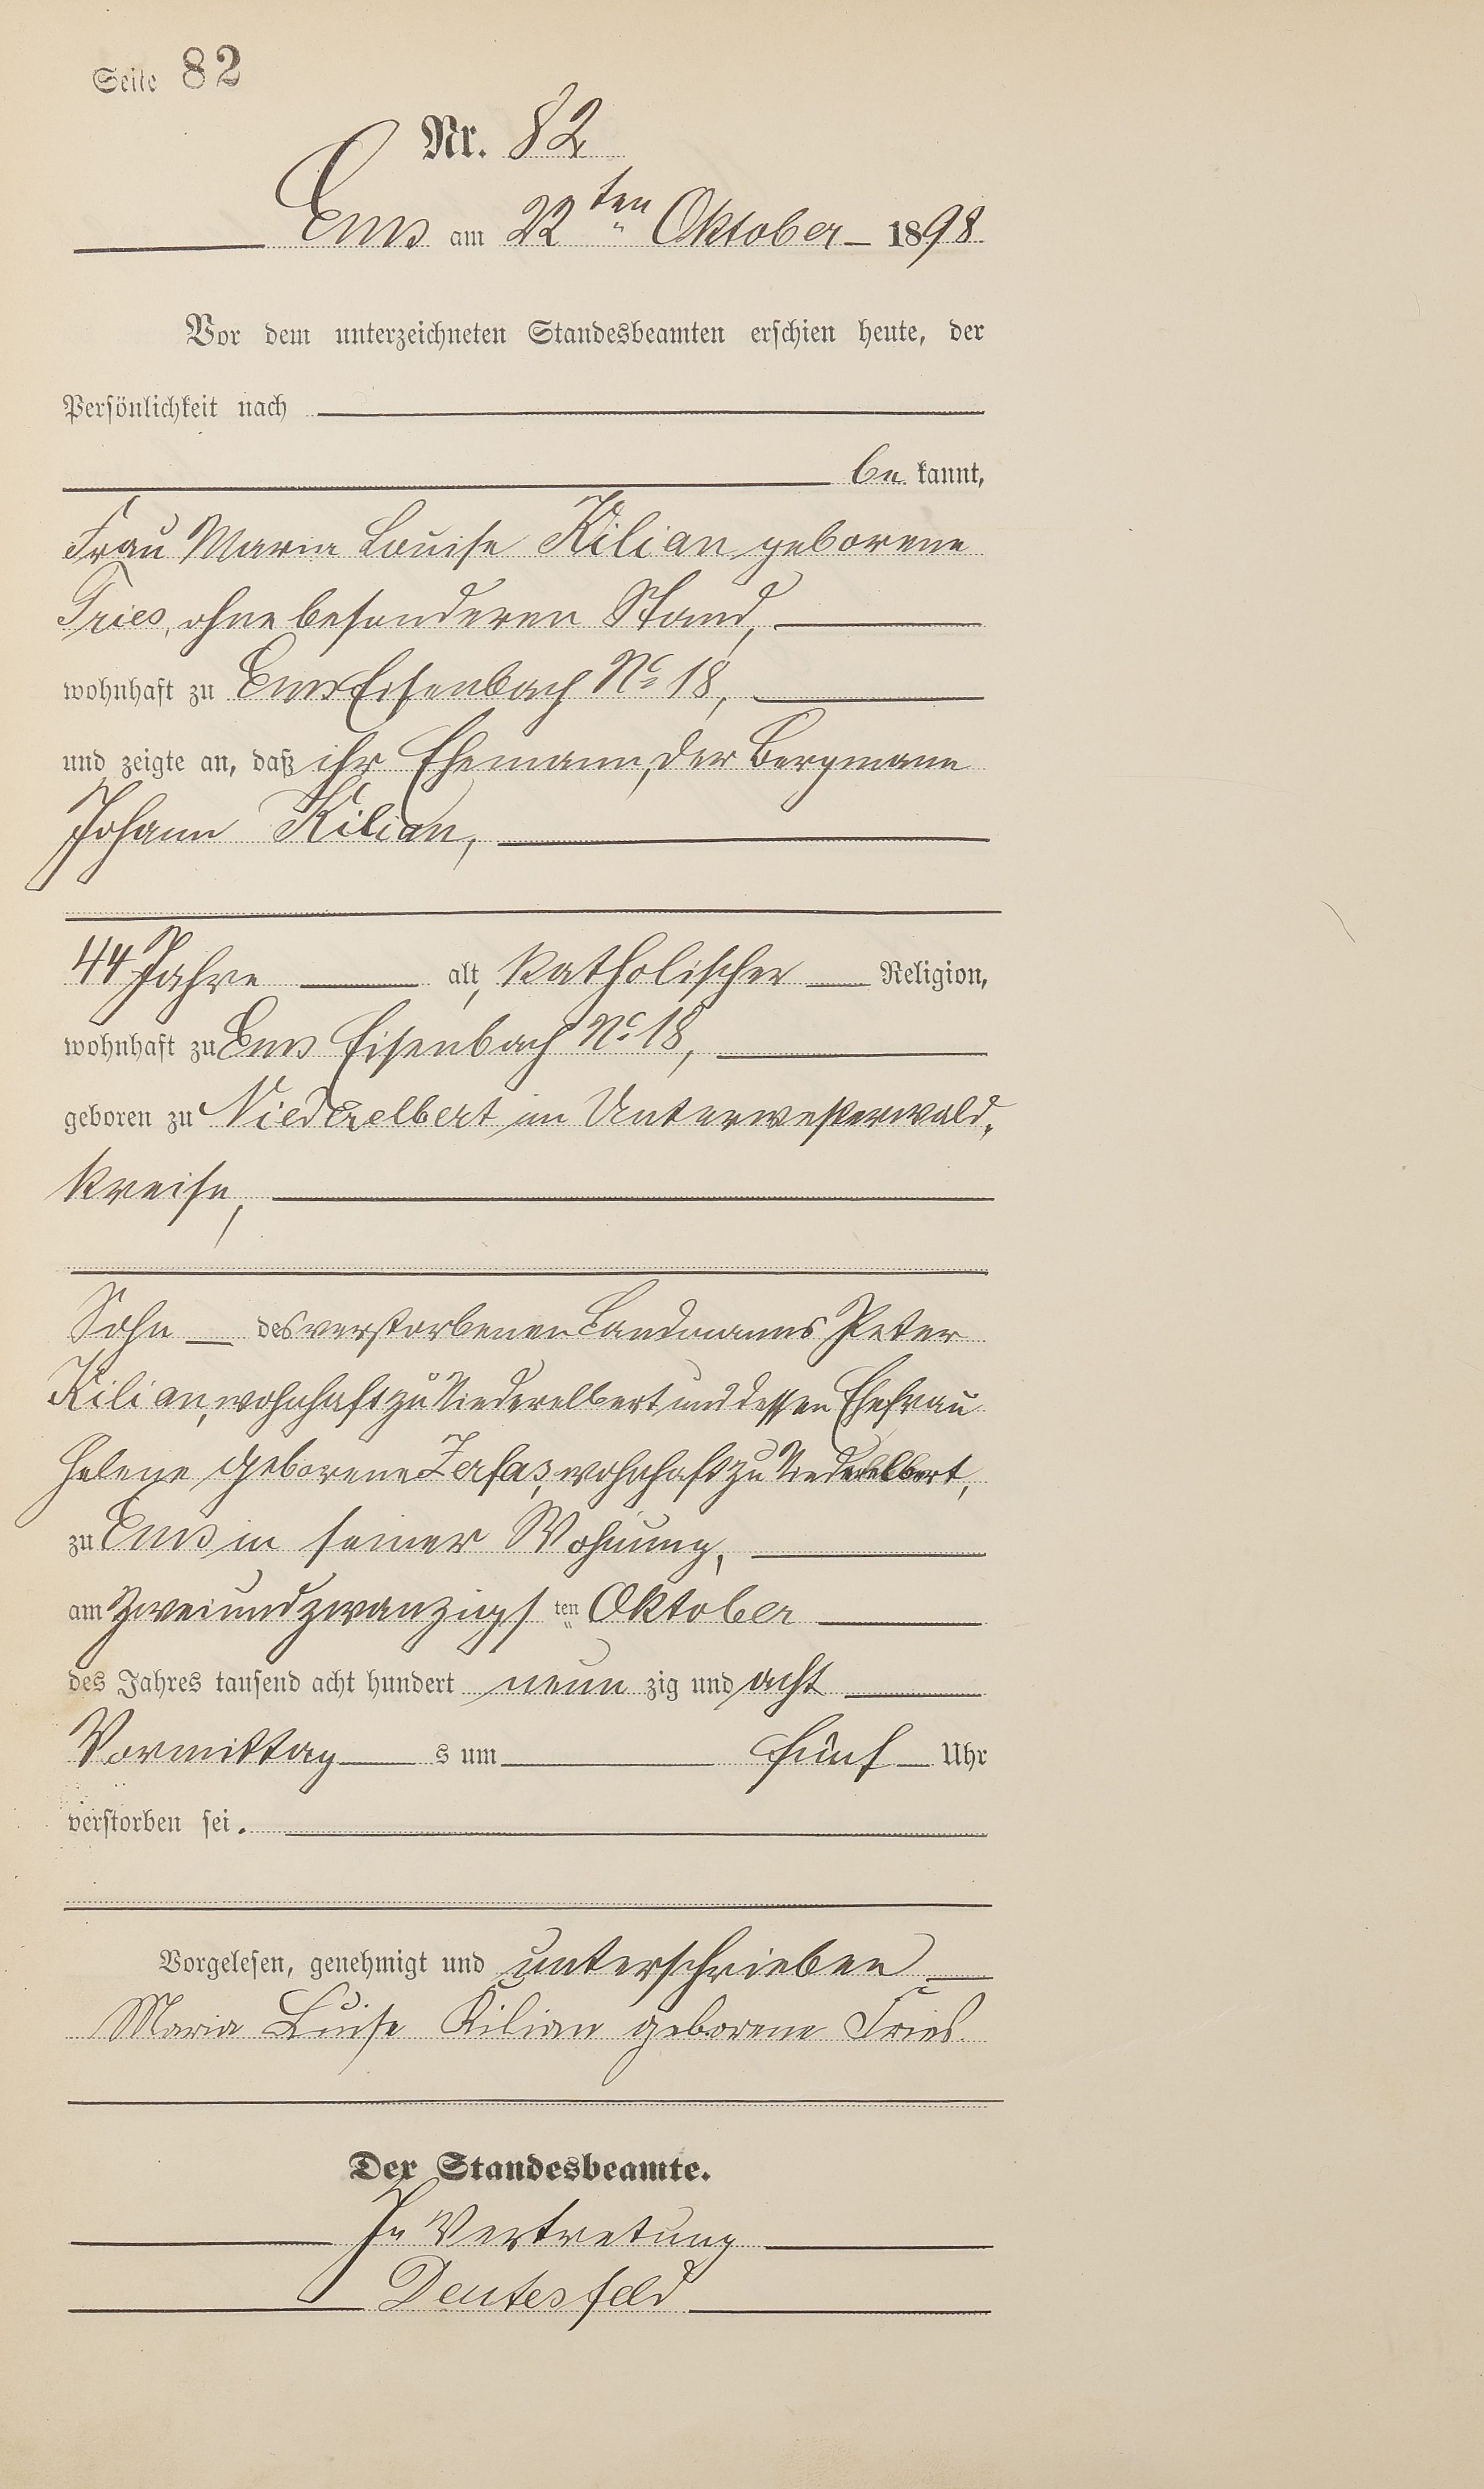 Seite 82
Nr. 82
Ems am 22ten Oktober 1898
Vor dem unterzeichneten Standesbeamten erschien heute, der
Persönlichkeit nach
be kannt,
Frau Maria Louise Kilian geborene
Fries, ohne besonderen Stand,
wohnhaft zu Ems Eisenbach No 18,
und zeigte an, daß ihr Ehemann, der Bergmann
Johann Kilian,
44 Jahre alt, katholischer Religion,
wohnhaft zu Ems Eisenbach No 18,
geboren zu Niederelbert im Unterwesterwald„
kreise,
Sohn des verstorbenen Landmanns Peter
Kilian, wohnhaft zu Niederelbert und dessen Ehefrau
Helene geborene Zerfas, wohnhaft zu Niederelbert,
zu Ems in seiner Wohnung,
am zweiundzwanzigs ten Oktober
des Jahres tausend acht hundert neun zig und acht
Vormittag s um fünf Uhr
verstorben sei.
Vorgelesen, genehmigt und unterschrieben
Maria Luise Kilian geborene Fries.
Der Standesbeamte.
In Vertretung
Deutesfeld